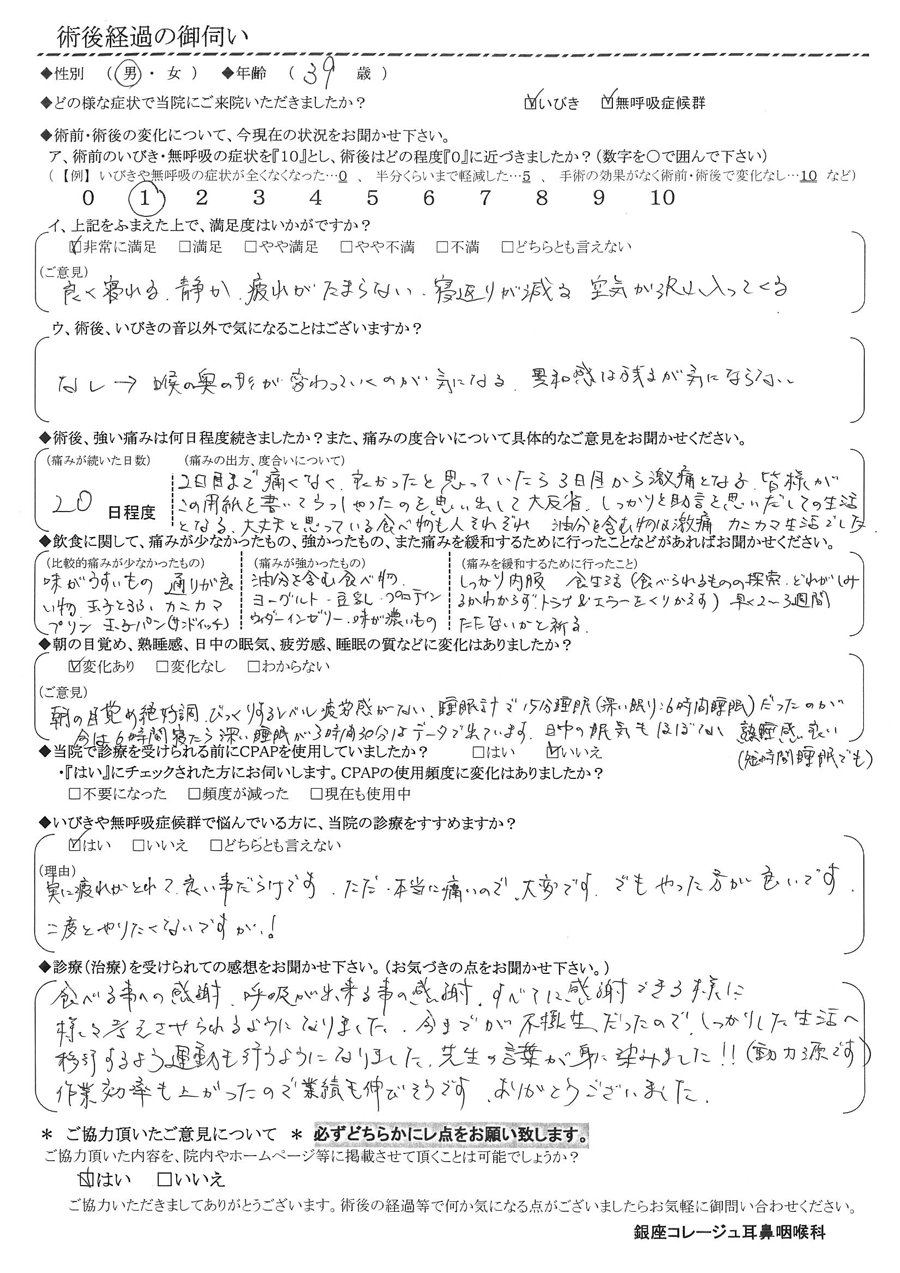 術後経過の御伺い
◆性別 （ 男 ・ 女 ） ◆年齢 （ 39 歳 ）
◆どの様な症状で当院にご来院いただきましたか？ ☑いびき ☑無呼吸症候群
◆術前・術後の変化について、今現在の状況をお聞かせ下さい。
ア、術前のいびき・無呼吸の症状を『10』とし、術後はどの程度『0』に近づきましたか？（数字を○で囲んで下さい）
（ 【例】 いびきや無呼吸の症状が全くなくなった…0 、 半分くらいまで軽減した…5 、 手術の効果がなく術前・術後で変化なし…10 など）
0 1 2 3 4 5 6 7 8 9 10
イ、上記をふまえた上で、満足度はいかがですか？
☑非常に満足 □満足 □やや満足 □やや不満 □不満 □どちらとも言えない
(ご意見)
良く寝れる、静か、疲れがたまらない、寝返りが減る 空気が沢山入ってくる
ウ、術後、いびきの音以外で気になることはございますか？
なし → 喉の奥の形が変わっていくのが気になる、異和感は残るが気にならない
◆術後、強い痛みは何日程度続きましたか？また、痛みの度合いについて具体的なご意見をお聞かせください。
(痛みが続いた日数) (痛みの出方、度合いについて)
20 日程度
2日目まで痛くなく、良かったと思っていたら3日目から激痛となる、皆様が
この用紙を書いてらっしゃったのを思い出して大反省、しっかりと助言を思いだしての生活
となる、大丈夫と思っている食べ物も人それぞれ 油分を含む物は激痛 カニカマ生活でした
◆飲食に関して、痛みが少なかったもの、強かったもの、また痛みを緩和するために行ったことなどがあればお聞かせください。
(比較的痛みが少なかったもの) (痛みが強かったもの) (痛みを緩和するために行ったこと)
味がうすいもの 通りが良
い物、玉子とうふ カニカマ
プリン 玉子パン(サンドイッチ)
油分を含む食べ物、
ヨーグルト・豆乳・プロテイン
ウィダーインゼリー・味が濃いもの
しっかり内服 食生活（食べられるものの探索、どれがしみ
るかわからずトライ&エラーをくりかえす）早く2〜3週間
たたないかと祈る、
◆朝の目覚め、熟睡感、日中の眠気、疲労感、睡眠の質などに変化はありましたか？
☑変化あり □変化なし □わからない
(ご意見)
朝の目覚め絶好調、びっくりするレベル 疲労感がない、睡眠計で15分睡眠(深い眠り:6時間睡眠)だったのが
今は6時間寝たら深い睡眠が3時間30分はデータで出ています、日中の眠気もほぼない 熟睡感良い
(短時間睡眠でも)
◆当院で診療を受けられる前にCPAPを使用していましたか？ □はい ☑いいえ
・『はい』にチェックされた方にお伺いします。CPAPの使用頻度に変化はありましたか？
□不要になった □頻度が減った □現在も使用中
◆いびきや無呼吸症候群で悩んでいる方に、当院の診療をすすめますか？
☑はい □いいえ □どちらとも言えない
(理由)
実に疲れがとれて、良い事だらけです、ただ・本当に痛いので、大変です、でもやった方が良いです、
二度とやりたくないですが、！
◆診療（治療）を受けられての感想をお聞かせ下さい。（お気づきの点をお聞かせ下さい。）
食べる事への感謝、呼吸が出来る事の感謝、すべてに感謝できる様に
様々考えさせられるようになりました、今までが不摂生だったので、しっかりした生活へ
移行するよう運動も行うようになりました、先生の言葉が身に染みました!!(動力源です)
作業効率も上がったので業績も伸びそうです、ありがとうございました、
＊ ご協力頂いたご意見について ＊ 必ずどちらかにレ点をお願い致します。
ご協力頂いた内容を、院内やホームページ等に掲載させて頂くことは可能でしょうか？
☑はい □いいえ
ご協力いただきましてありがとうございます。術後の経過等で何か気になる点がございましたらお気軽に御問い合わせください。
銀座コレージュ耳鼻咽喉科